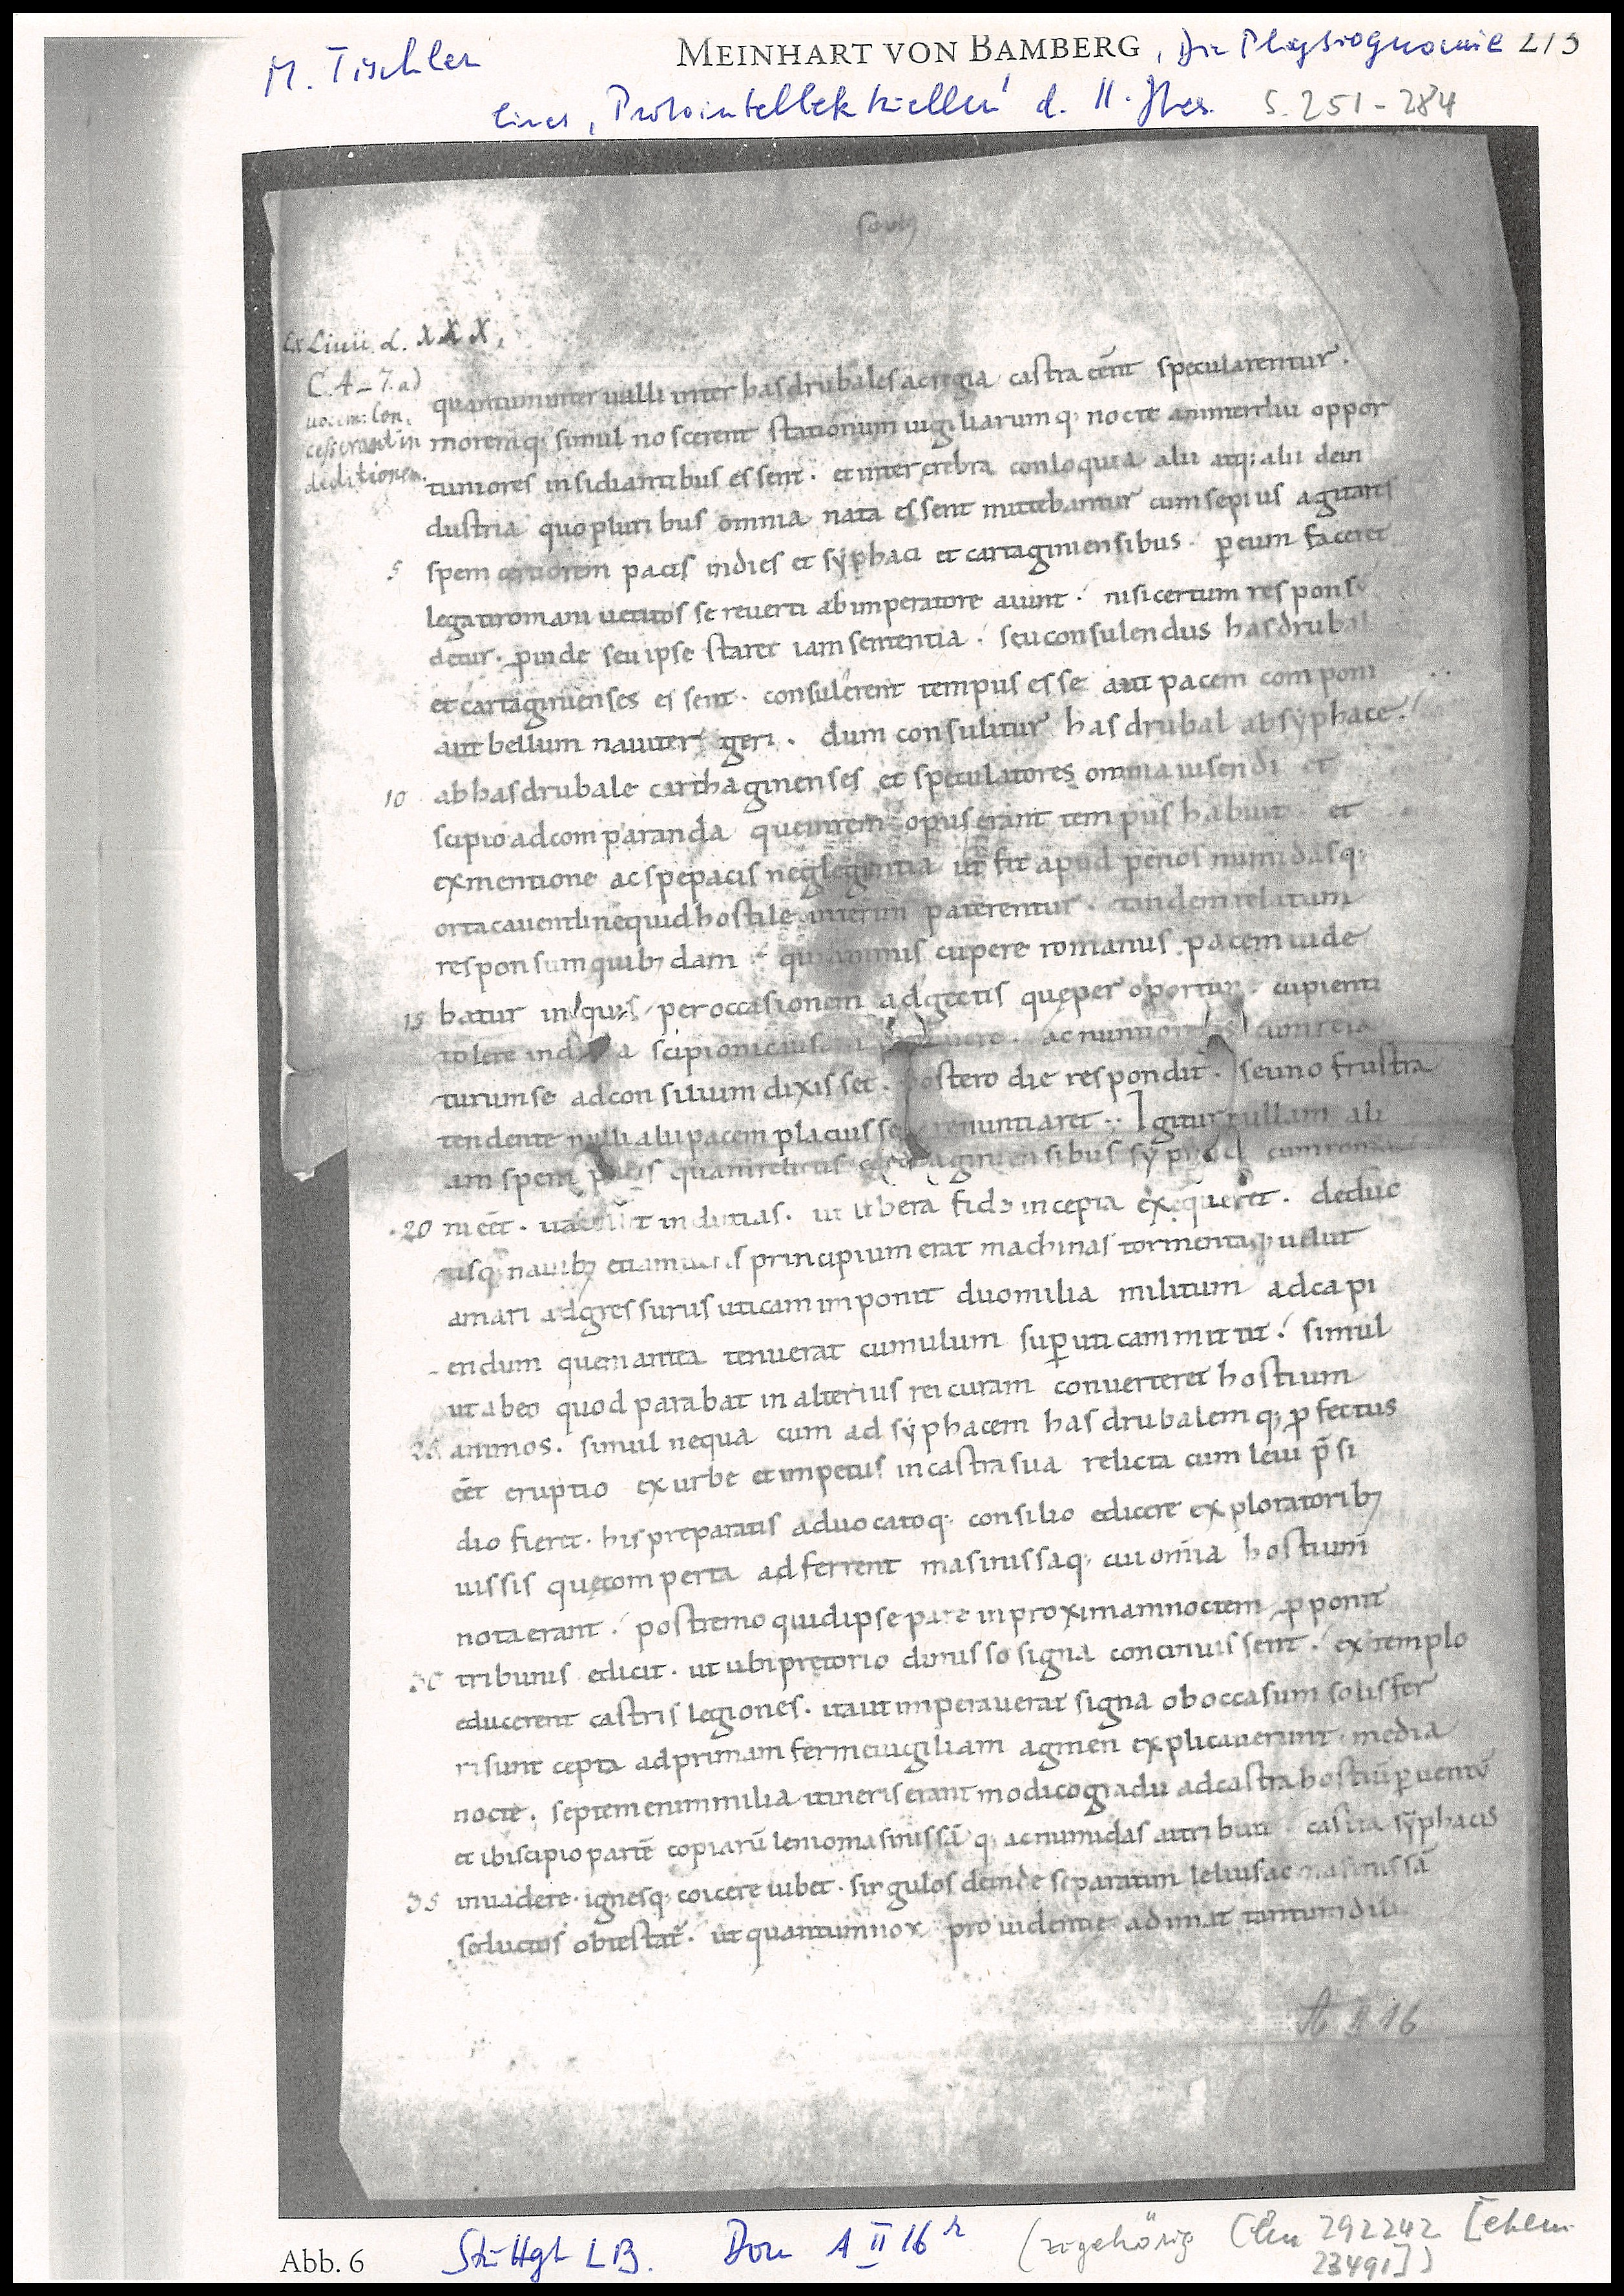 M. Tischler MEINHART VON BAMBERG, Die Physiognomie 273
eines "Protointellektuellen" d. 11. Jhes. S. 251-284
Ex Liuii. d. XXX,
C. 4-7. ad
uocem: con,
cesserant in
deditionem.
quantum inter ualli inter hasdrubalis ac regia castra eēnt specularentur.
moremq; simul noscerent stationum uigiliarumq; nocte an interdiu oppor
tuniores insidiantibus essent. et inter crebra conloquia alii atq; alii dein
dustria quo pluribus omnia nata essent mittebantur cum sepius agitans
5 spem certiorem pacis indies et syphaci et cartaginiensibus. p eum faceret
legati romani uetitos se reuerti ab imperatore aiunt. nisi certum responsū
detur. proinde seu ipse staret iam sententia. seu consulendus hasdrubal
et cartaginienses essent. consulerent tempus esse aut pacem componi
aut bellum nauiter geri. dum consulitur hasdrubal ab syphace.
10 ab hasdrubale carthaginenses et speculatores omnia uisendi et
scipio ad comparanda que in rem opus erant tempus habuit. et
ex mentione ac spe pacis neglegentia ut fit apud penos numidasq;
orta cauendi nequid hostile interim paterentur. tandem relatum
responsum quib; dam. quia nimis cupere romanus pacem uide
15 batur iniquis per occasionem adgectis que per oportun cupienti
tolere scipioni
turum se ad consilium dixisset. postero die respondit. se uno frustra
tendente nulli alii pacem placuisse renuntiaret. Igitur nullam ali
am spem pacis quam relictis cartaginiensibus syphaci cum roma
20 ni eēt. indutias. ut libera fide incepta exequeret. deduc
tisq; nauib; etiam ueris principium erat machinas tormentaq; uelut
amari adgressurus uticam imponit duo milia militum ad capi
endum quem antea tenuerat cumulum sup uticam mittit. simul
ut ab eo quod parabat in alterius rei curam conuerteret hostium
25 animos. simul nequa cum ad syphacem hasdrubalemq; pfectus
eēt eruptio ex urbe et impetus in castra sua relicta cum leui p̄si
dio fieret. his preparatis aduocatoq; consilio edicere exploratorib;
iussis que comperta adferrent masinissaq; cui om̄ia hostium
nota erant. postremo quid ipse pare in proximam noctem pponit
30 tribunis edicit. ut ubi pretorio dimisso signa concinuissent. extemplo
educerent castris legiones. ita ut imperauerat signa ob occasum solis fer
ri sunt cepta ad primam ferme uigiliam agmen explicauerunt. media
nocte. septem enim milia itineris erant modico gradu ad castra hostiū puentū
et ibi scipio partē copiarū lenio masinissāq; ac numidas attribuit castra syphacis
35 inuadere. ignesq; coicere iubet. singulos deinde separatim leliusac masinissā
seductos obtestat̄. ut quantum nox prouidentie adimat tantum dili
A II 16
Abb. 6 Stuttgt LB. Don A II 16 r (zugehörig Clm 29224 2 [ehem.
23491])